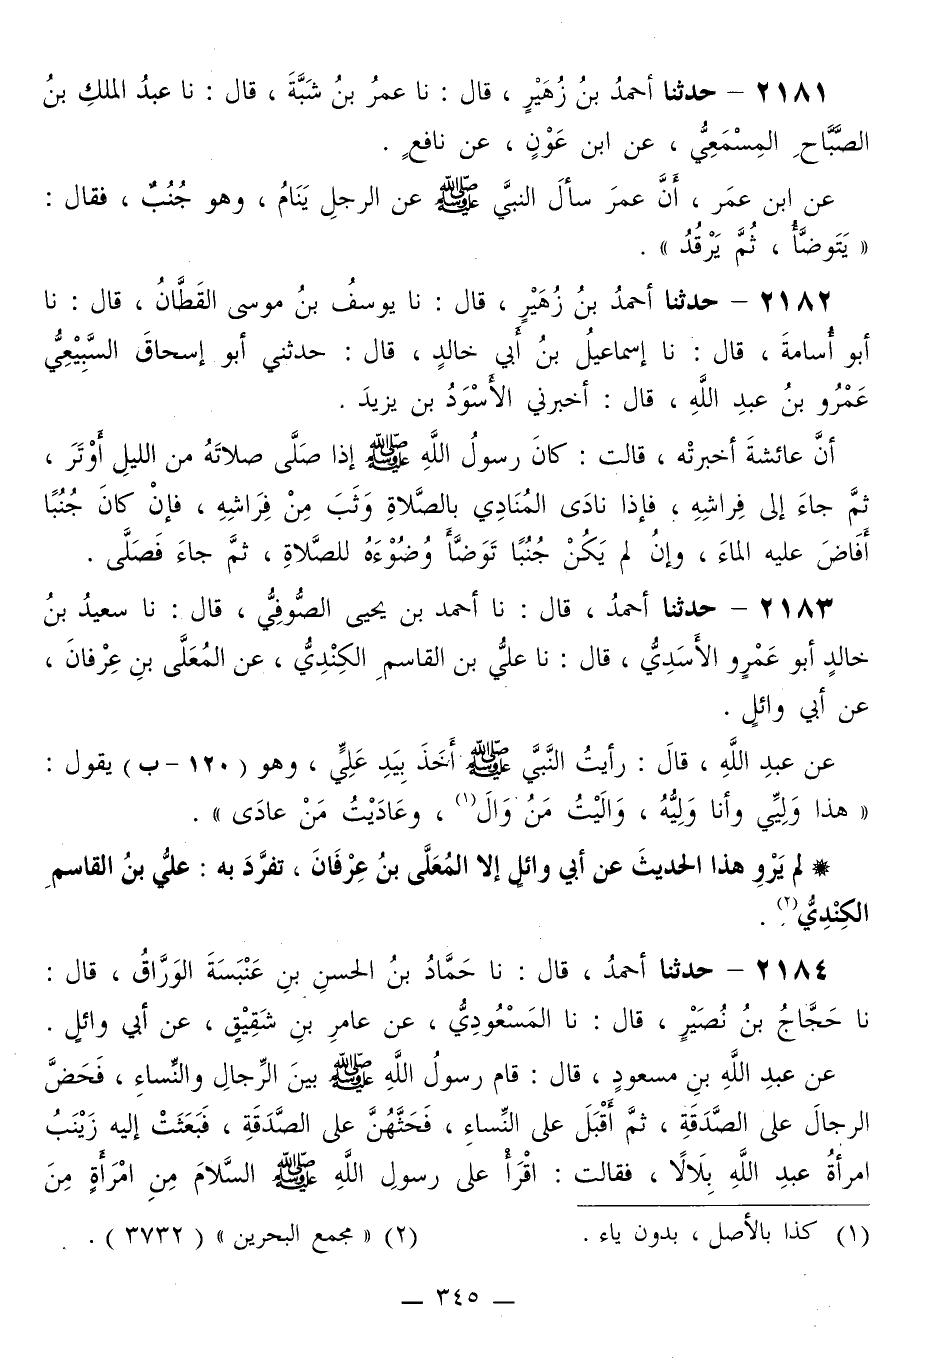 ٢١٨١ – حدثنا أحمدُ بنُ زُهَيْرٍ ، قال : نا عمرُ بنُ شَبَّةَ ، قال : نا عبدُ الملكِ بنُ
الصَّبَّاحِ المِسْمَعِيُّ ، عن ابن عَوْنٍ ، عن نافعٍ .
عن ابن عمَر ، أنَّ عمرَ سألَ النبيَّ ﷺ عن الرجلِ يَنَامُ ، وهو جُنُبٌ ، فقال :
« يَتَوضَّأُ ، ثُمَّ يَرْقُدُ » .
٢١٨٢ – حدثنا أحمدُ بنُ زُهَيْرٍ ، قال : نا يوسفُ بنُ موسى القَطَّانُ ، قال : نا
أبو أُسامةَ ، قال : نا إسماعيلُ بنُ أبي خالدٍ ، قال : حدثني أبو إسحاقَ السَّبِيْعِيُّ
عَمْرُو بنُ عبدِ اللَّهِ ، قال : أخبرني الأَسْوَدُ بن يزيدَ .
أنَّ عائشةَ أخبرتْه ، قالت : كانَ رسولُ اللَّهِ ﷺ إذا صَلَّى صلاتَهُ من الليلِ أَوْتَرَ ،
ثمَّ جاءَ إلى فِراشِهِ ، فإذا نادَى المُنَادِي بالصَّلاةِ وَثَبَ مِنْ فِرَاشِهِ ، فإنْ كانَ جُنُبًا
أَفَاضَ عليه الماءَ ، وإنُ لم يَكُنْ جُنُبًا تَوَضَّأَ وُضُوْءَهُ للصَّلاةِ ، ثمَّ جاءَ فَصَلَّى .
٢١٨٣ – حدثنا أحمدُ ، قال : نا أحمد بن يحيى الصُّوفِيُّ ، قال : نا سعيدُ بنُ
خالدٍ أبو عَمْرٍو الأَسَدِيُّ ، قال : نا عليُّ بن القاسمِ الكِنْدِيُّ ، عن المُعَلَّى بنِ عِرْفانَ ،
عن أبي وائلٍ .
عن عبدِ اللَّهِ ، قالَ : رأيتُ النَّبيَّ ﷺ أَخَذَ بِيَدِ عَلِيٍّ ، وهو ( ١٢٠ – ب ) يقول :
« هذا وَلِيِّي وأنا وَلِيُّهُ ، وَالَيْتُ مَنُ وَالَ(١) ، وعَادَيْتُ مَنْ عادَى » .
* لم يَرْوِ هذا الحديثَ عن أبي وائلٍ إلا المُعَلَّى بنُ عِرْفَانَ ، تفرَّدَ به : عليُّ بنُ القاسمِ
الكِنْدِيُّ(٢) .
٢١٨٤ – حدثنا أحمدُ ، قال : نا حَمَّادُ بنُ الحسنِ بنِ عَنْبَسَةَ الوَرَّاقُ ، قال :
نا حَجَّاجُ بنُ نُصَيْرٍ ، قال : نا المَسْعُودِيُّ ، عن عامرِ بنِ شَقِيْقٍ ، عن أبي وائلٍ .
عن عبدِ اللَّهِ بنِ مسعودٍ ، قال : قام رسولُ اللَّهِ ﷺ بينَ الرِّجالِ والنِّساءِ ، فَحَضَّ
الرجالَ على الصَّدَقَةِ ، ثمَّ أَقْبَلَ على النِّساءِ ، فَحَثَّهُنَّ على الصَّدَقَةِ ، فَبَعَثَتْ إليه زَيْنَبُ
امرأةُ عبدِ اللَّهِ بِلَالًا ، فقالت : اقْرَأْ على رسولِ اللَّهِ ﷺ السَّلامَ مِنِ امْرَأةٍ مِنَ
(١) كذا بالأصل ، بدون ياء .
(٢) « مجمع البحرين » ( ٣٧٣٢ ) .
— ٣٤٥ —